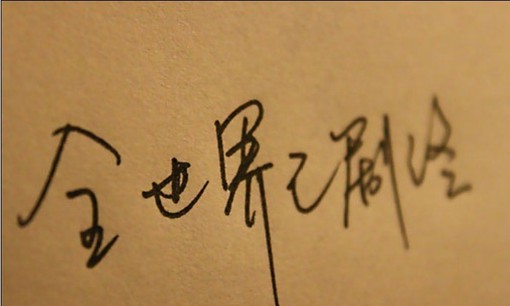 全世界已剧终